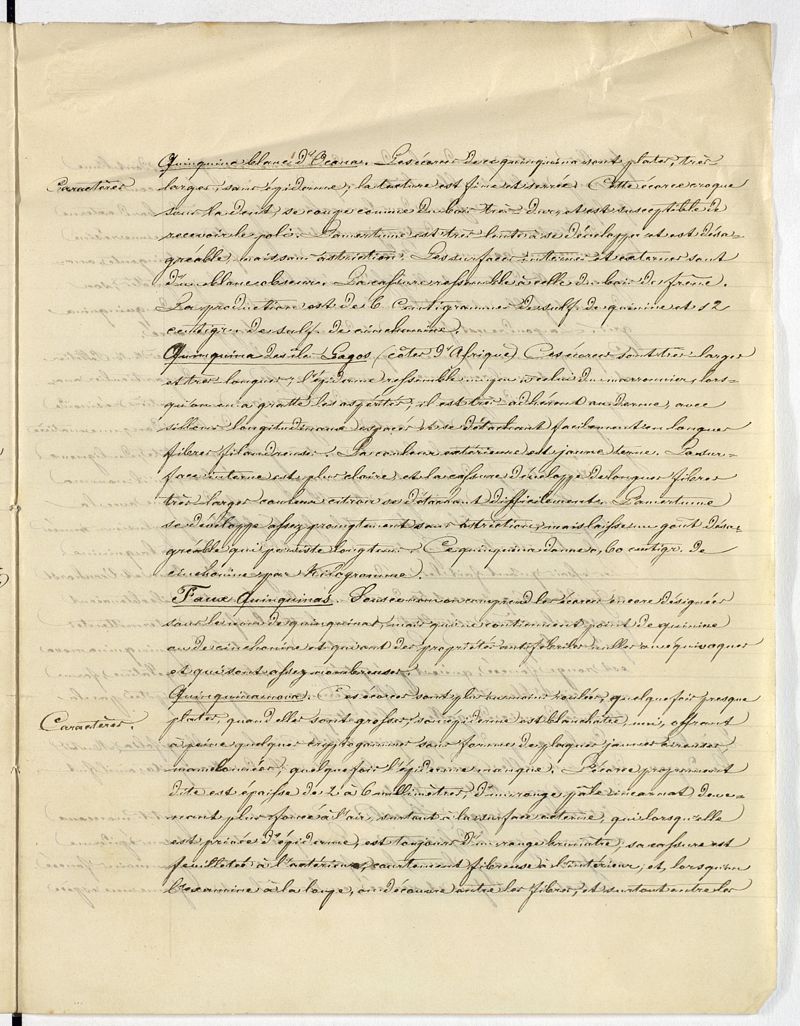 Quinquina blanc d'Ocana. Les écorces de ce quinquina sont plates, très
Caractères
larges, sans épiderme, la texture est fine et serrée. Cette écorce craque
sous la dent, se coupe comme du bois très dur, et est susceptible de
recevoir le poli. L'amertume est très lente à se développer et est désa-
gréable, mais sans astriction. Les surfaces internes et externes sont
d'un blanc obscur. La cassure ressemble à celle du bois de frêne.
La production est de 6 centigrammes de sulf. de quinine et 12
centigr. de sulf. de cinchonine.
Quinquina des îles Lagos (côtes d'Afrique) Ces écorces sont très larges
et très longues; l'épiderme ressemble un peu à celui du marronnier, lors-
qu'on en a gratté les aspérités, il est très adhérent au derme, avec
sillons longitudinaux espacés, et se détachant facilement en longues
fibres filandreuses. La couleur extérieure est jaune terne. La sur-
face interne est plus claire, et la cassure développe de longues fibres
très larges couleur citron se détachant difficilement. L'amertume
se développe assez promptement sans astriction, mais laisse un goût désa-
gréable qui persiste longtems. Ce quinquina donne 0,60 centigr. de
cinchonine par Kilogramme.
Faux Quinquinas. Sous ce nom on comprend les écorces encore désignées
sous le nom de quinquinas, mais qui ne contiennent point de quinine
ou de cinchonine et qui ont des propriétés antifébriles nulles ou équivoques
et qui sont assez nombreuses.
Quinquina nova. Ces écorces sont plus ou moins roulées, quelquefois presque
Caractères.
plates, quand elles sont grosses; son épiderme est blanchâtre, uni, offrant
à peine quelques cryptogammes sous forme de plaques jaunes cireuses,
mamelonnées; quelquefois l'épiderme manque. L'écorce proprement
dite est épaisse de 2 à 6 millimètres, d'un rouge pâle incarnat deve-
nant plus foncé à l'air, surtout à la surface externe, qui lorsqu'elle
est privée d'épiderme, est toujours d'un rouge brunâtre, sa cassure est
feuilletée à l'extérieur, courtement fibreuse à l'intérieur, et, lorsqu'on
l'examine à la loupe, on découvre entre les fibres, et surtout entre les